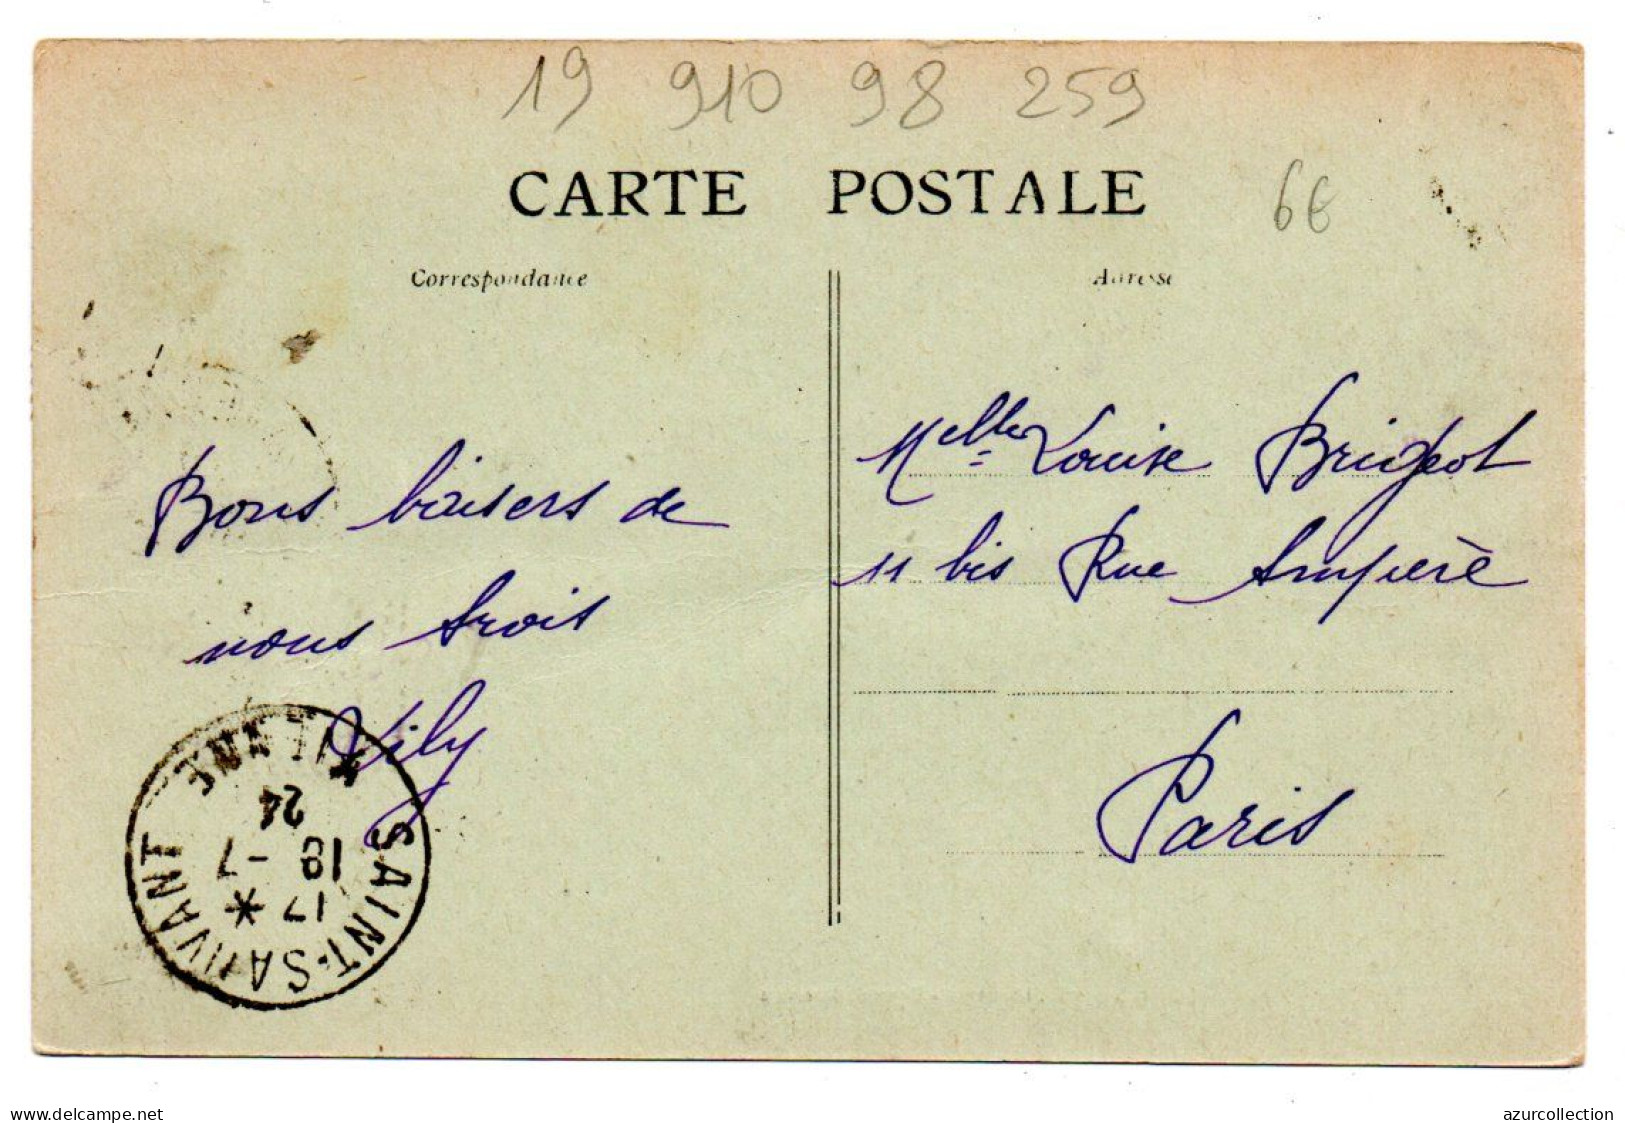 19 910 98 259
CARTE POSTALE
6€
Correspondance
Adresse
Melle Louise Brigeot
11 bis Rue Ampère
Paris
Bons baisers de
nous trois
Lily
SAINT-SAUVANT
VIENNE
17 *
18 -7
24
www.delcampe.net
azurcollection